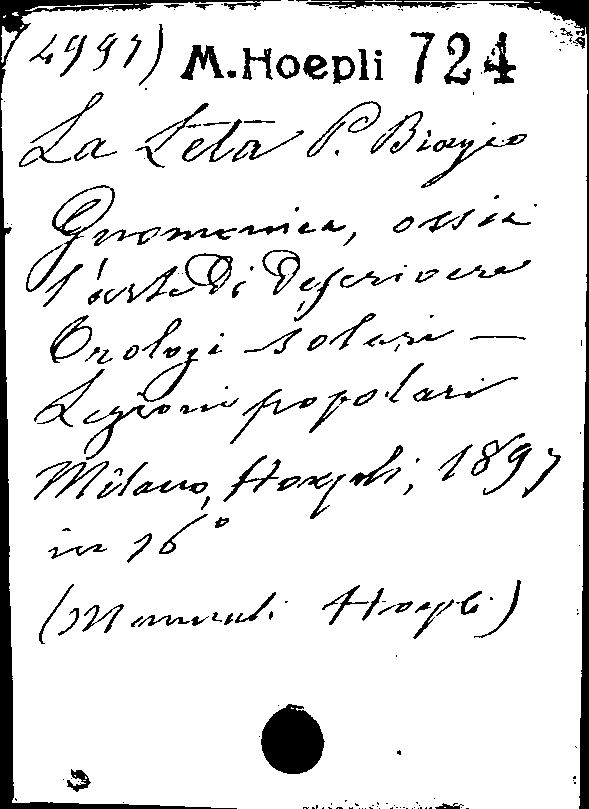 (4997) M.Hoepli 724
La Leta P. Biagio
Gnomonica, ossia
l'arte di descrivere
Orologi solari —
Lezioni popolari
Milano, Hoepli, 1897
in 16°
(Manuali Hoepli)